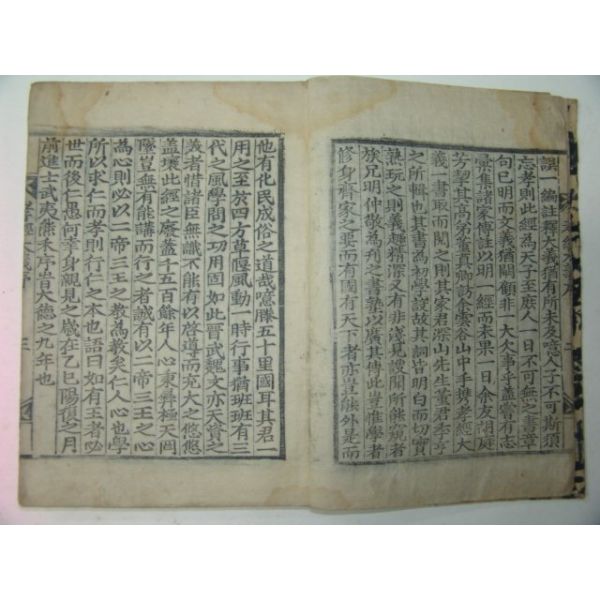 誤一編註釋大義猶有所未及噫人子不可斯須
忘孝則此經為天子至庶人一日不可無之書章
句已明而文義猶闕顧非一大欠事乎蓋嘗有志
彙集諸家傳註以明一經而未果一日余友胡庭
芳挈其高弟董眞卿訪余雲谷山中手携孝經大
義一書取而閱之則其家君深山先生董君季亨
之所輯也其書為初學設故其詞皆明白而切實
熟玩之則義趣精深又有非淺見謏聞所能窺者
族兄明仲敬為刋之書塾以廣其傳此豈惟學者
修身齊家之要而有國有天下者亦豈能外是而
他有化民成俗之道哉噫滕五十里國耳其君一
用之至於四方草偃風動一時行事猶班班有三
代之風學問之功用固如此晋武魏文亦天資之
美者惜諸臣無識不能有以啓導而充大之悠悠
蓋壤此經之廢蓋千五百餘年人心秉彝極天罔
墜豈無有能講而行之者誠有以二帝三王之心
為心則必以二帝三王之敎為敎矣仁人心也學
所以求仁而孝則行仁之本也語曰如有王者必
世而後仁愚何幸身親見之歲在乙巳陽復之月
前進士武夷熊禾序旹大德之九年也